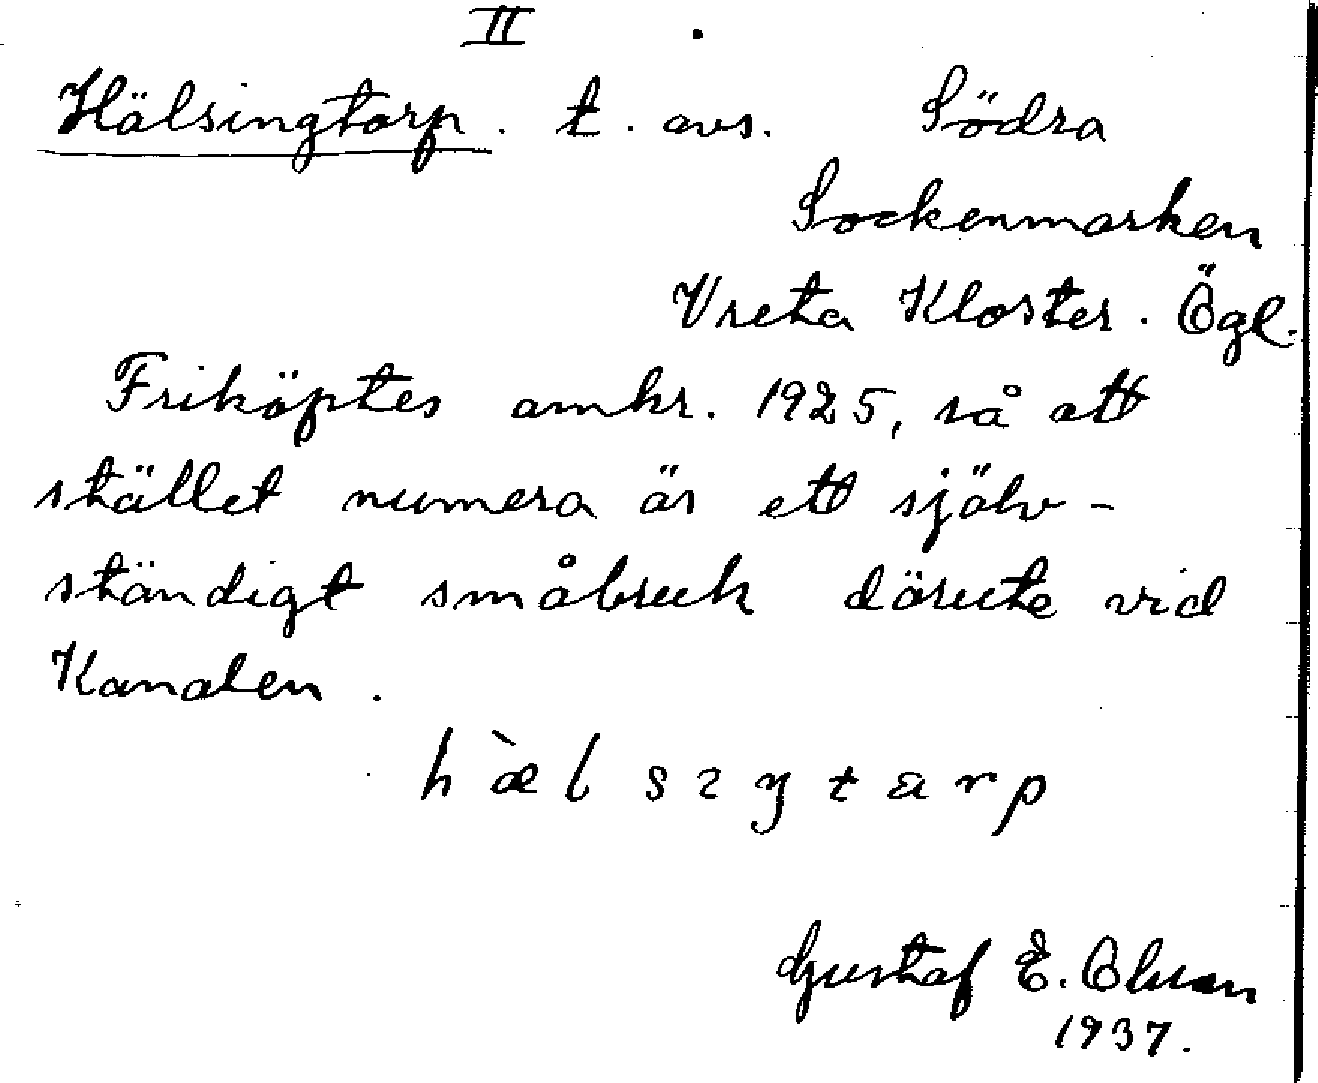 II
Hälsingtorp. t. avs. Södra
Sockenmarken
Vreta Kloster. Ögl.
Friköptes omkr. 1925, så att
stället numera är ett själv-
ständigt småbruk därute vid
Kanalen.
hæ̀lsıŋtarp
Gustaf E.
1937.